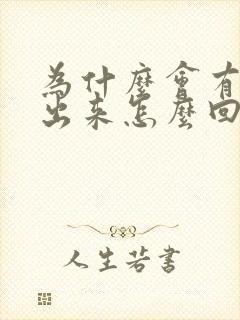 為什麼會有
出来怎麼回
人生若書